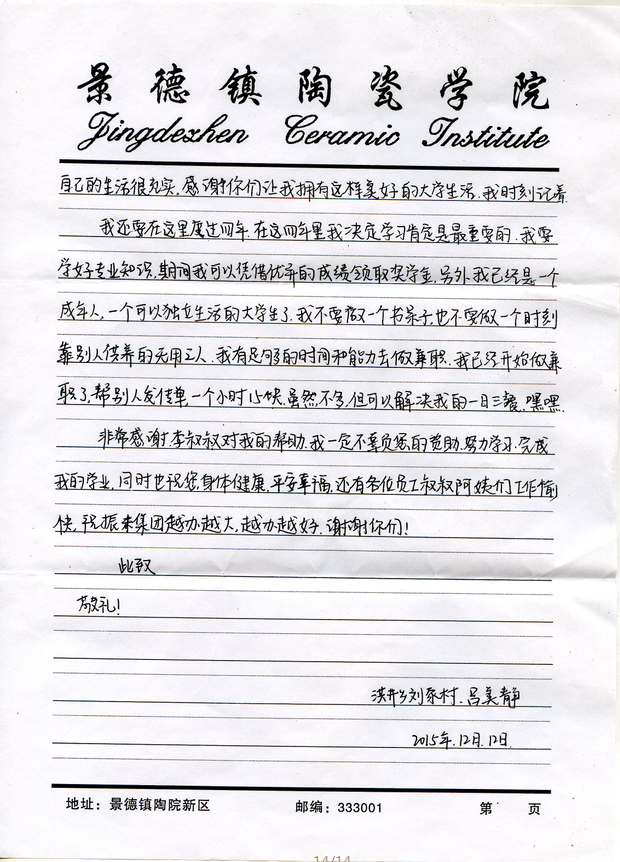 景德镇陶瓷学院
Jingdezhen Ceramic Institute
自己的生活很充实,感谢你们让我拥有这样美好的大学生活,我时刻记着.
我还要在这里度过四年,在这四年里我决定学习肯定是最重要的,我要
学好专业知识,期间我可以凭借优异的成绩领取奖学金,另外,我已经是一个
成年人,一个可以独立生活的大学生了,我不要做一个书呆子,也不要做一个时刻
靠别人供养的无用之人,我有足够的时间和能力去做兼职,我已经开始做兼
职了,帮别人发传单,一个小时15块,虽然不多,但可以解决我的一日三餐,嘿嘿.
非常感谢李叔叔对我的帮助,我一定不辜负您的资助,努力学习,完成
我的学业,同时也祝您身体健康,平安幸福,还有各位员工叔叔阿姨们工作愉
快,祝振来集团越办越大,越办越好.谢谢你们!
此致
敬礼!
洪井乡刘家村.吕美静
2015年.12月.12日.
地址:景德镇陶院新区 邮编:333001 第 页
14/14